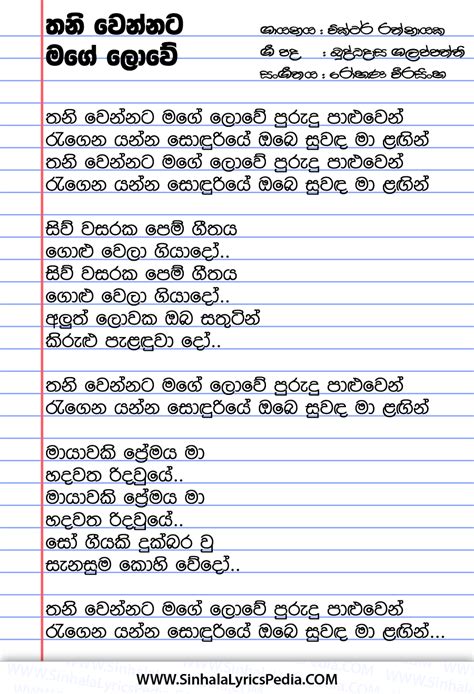 තනි වෙන්නට
මගේ ලොවේ
ගායනය : වික්ටර් රත්නායක
ගී පද : බුද්ධදාස ගලප්පත්ති
සංගීතය : රෝහණ වීරසිංහ
තනි වෙන්නට මගේ ලොවේ පුරුදු පාළුවෙන්
රැගෙන යන්න සොඳුරියේ ඔබෙ සුවඳ මා ළඟින්
තනි වෙන්නට මගේ ලොවේ පුරුදු පාළුවෙන්
රැගෙන යන්න සොඳුරියේ ඔබෙ සුවඳ මා ළඟින්
සිව් වසරක පෙම් ගීතය
ගොළු වෙලා ගියාදෝ..
සිව් වසරක පෙම් ගීතය
ගොළු වෙලා ගියාදෝ..
අලුත් ලොවක ඔබ සතුටින්
කිරුළු පැළඳුවා දෝ..
තනි වෙන්නට මගේ ලොවේ පුරුදු පාළුවෙන්
රැගෙන යන්න සොඳුරියේ ඔබෙ සුවඳ මා ළඟින්
මායාවකි ප්‍රේමය මා
හදවත රිදවූයේ..
මායාවකි ප්‍රේමය මා
හදවත රිදවූයේ..
සෝ ගීයකි දුක්බර වු
සැනසුම කොහි වේදෝ..
තනි වෙන්නට මගේ ලොවේ පුරුදු පාළුවෙන්
රැගෙන යන්න සොඳුරියේ ඔබෙ සුවඳ මා ළඟින්...
WWW.SinhalaLyricsPedia.COM